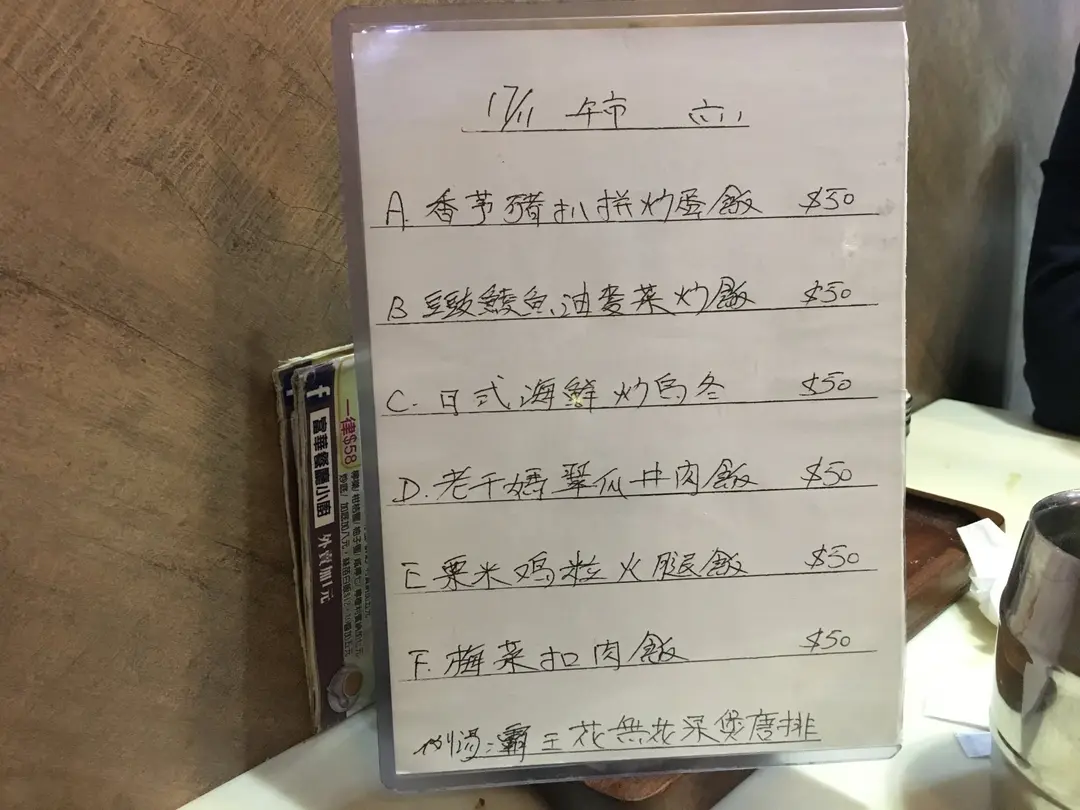 17/11 午市 六
A. 香芋豬扒拼炒蛋飯 $50
B 豆豉鯪魚油麥菜炒飯 $50
C. 日式海鮮炒烏冬 $50
D. 老干媽翠瓜牛肉飯 $50
E. 粟米鸡粒火腿飯 $50
F. 梅菜扣肉飯 $50
例湯: 霸王花無花果煲唐排
一律$58
富華餐廳小廚 外賣加1元